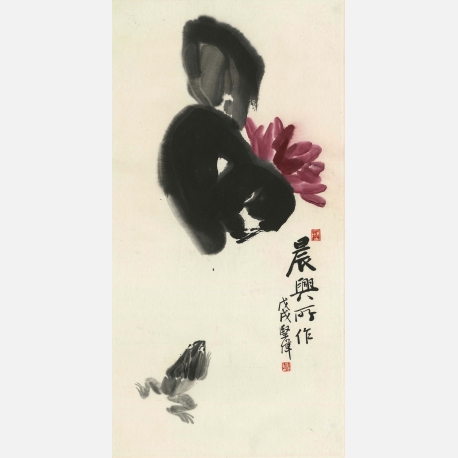 晨興所作
戊戌堅偉